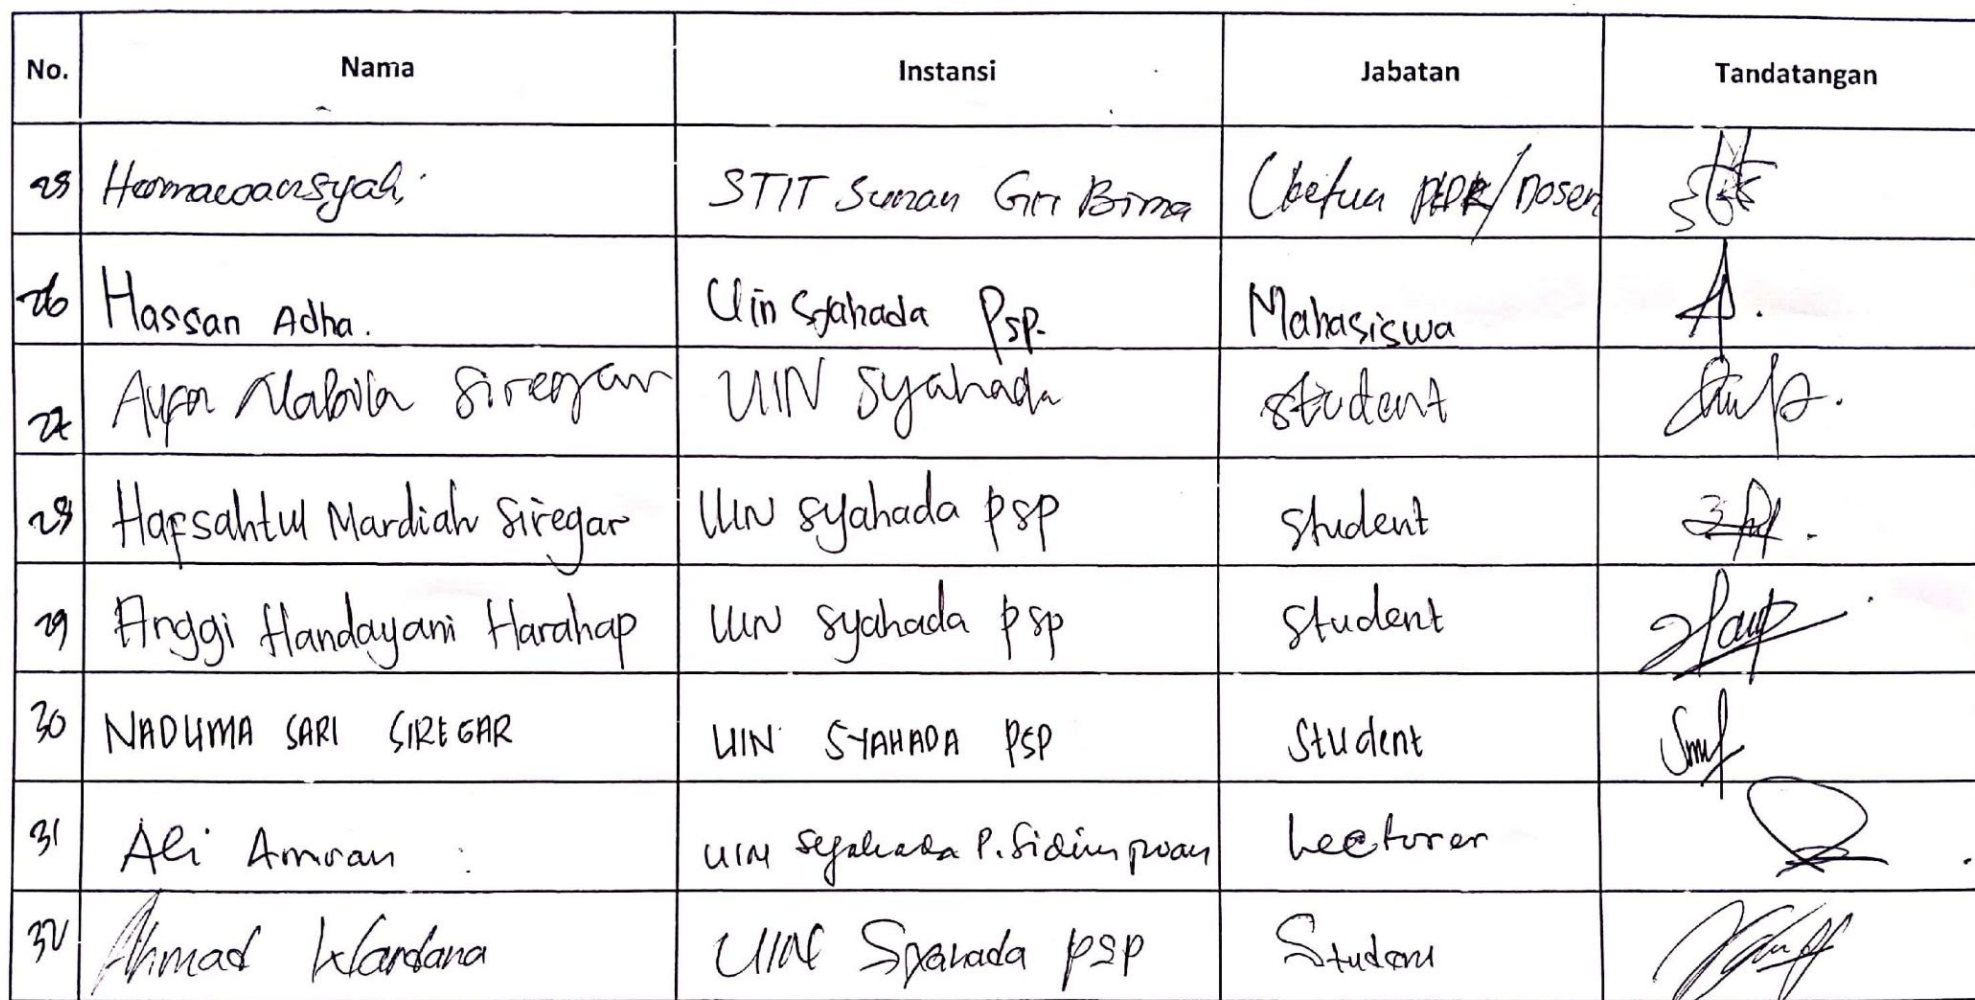 No. Nama Instansi Jabatan Tandatangan
25 STIT Sunan Giri Bima Dosen
26 Hassan Adha. Uin Syahada Psp. Mahasiswa
27 Siregar UIN Syahada student
28 Hafsahtul Mardiah Siregar UIN Syahada PSP Student
29 Anggi Handayani Harahap UIN Syahada PSP Student
30 NADUMA SARI SIREGAR UIN SYAHADA PSP Student
31 Ali Amran UIN Syahada P. Sidimpuan Lecturer
32 Ahmad Wardana UIN Syahada PSP Student